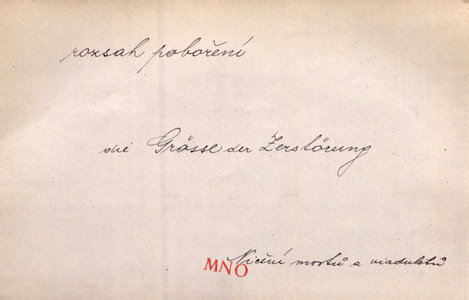 rozsah poboření
die Grösse der Zerstörung
MNO Ničení mostů a viaduktů